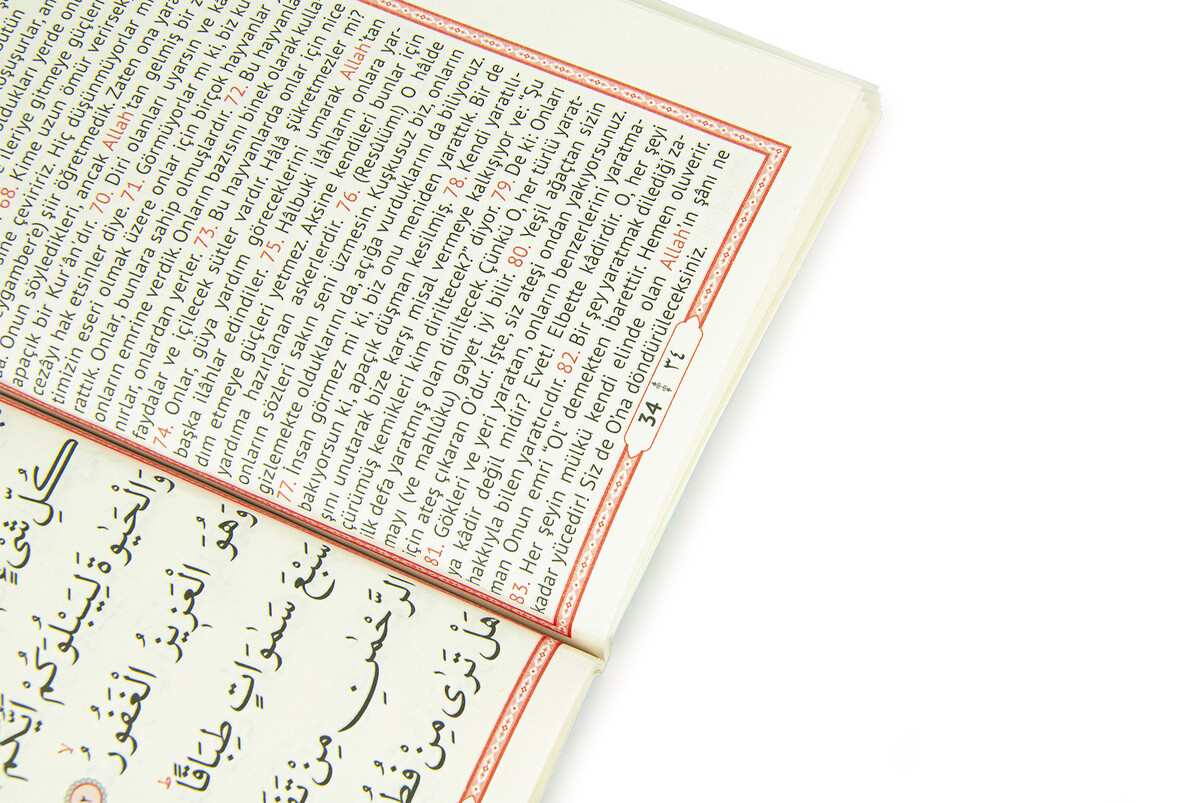 bütün
koşuşurlar, an
oldukları yerde on
e ileriye gitmeye güçleri
68. Kime uzun ömür verirsek
ne çeviririz. Hiç düşünmüyorlar mı
eygambere) şiir öğretmedik. Zaten ona yara
a. Onun söyledikleri, ancak Allah'tan gelmiş bir z
apaçık bir Kur'ân'dır. 70. Diri olanları uyarsın ve kâ
cezâyı hak etsinler diye. 71. Görmüyorlar mı ki, biz ku
timizin eseri olmak üzere onlar için birçok hayvanlar
rattık. Onlar, bunlara sahip olmuşlardır. 72. Bu hayvanla
onların emrine verdik. Onların bazısını binek olarak kulla
nırlar, onlardan yerler. 73. Bu hayvanlarda onlar için nice
faydalar ve içilecek sütler vardır. Hâlâ şükretmezler mi?
74. Onlar, güya yardım göreceklerini umarak Allah'tan
başka ilâhlar edindiler. 75. Hâlbuki ilâhların onlara yar-
dım etmeye güçleri yetmez. Aksine kendileri bunlar için
yardıma hazırlanan askerlerdir. 76. (Resûlüm!) O hâlde
onların sözleri sakın seni üzmesin. Kuşkusuz biz, onların
gizlemekte olduklarını da, açığa vurduklarını da biliyoruz
77. İnsan görmez mi ki, biz onu meniden yarattık. Bir de
bakıyorsun ki, apaçık düşman kesilmiş. 78. Kendi yaratılı-
şını unutarak bize karşı misal vermeye kalkışıyor ve: "Şu
çürümüş kemikleri kim diriltecek?" diyor. 79. De ki: Onları
ilk defa yaratmış olan diriltecek. Çünkü O, her türlü yarat-
mayı (ve mahlûku) gayet iyi bilir. 80. Yeşil ağaçtan sizin
için ateş çıkaran O'dur. İşte, siz ateşi ondan yakıyorsunuz.
81. Gökleri ve yeri yaratan, onların benzerlerini yaratma-
ya kâdir değil midir? Evet! Elbette kâdirdir. O, her şeyi
hakkıyla bilen yaratıcıdır. 82. Bir şey yaratmak dilediği za-
man Onun emri "Ol" demekten ibarettir. Hemen oluverir.
83. Her şeyin mülkü kendi elinde olan Allah'ın şânı ne
kadar yücedir! Siz de O'na döndürüleceksiniz.
34 ٣٤
كُلِّ شَيْءٍ
وَالْحَيٰوةَ لِيَبْلُوَكُمْ اَيُّكُمْ
وَهُوَ الْعَزِيزُ الْغَفُورُ
سَبْعَ سَمٰوَاتٍ طِبَاقًا
الرَّحْمٰنِ مِنْ
هَلْ تَرٰى مِنْ